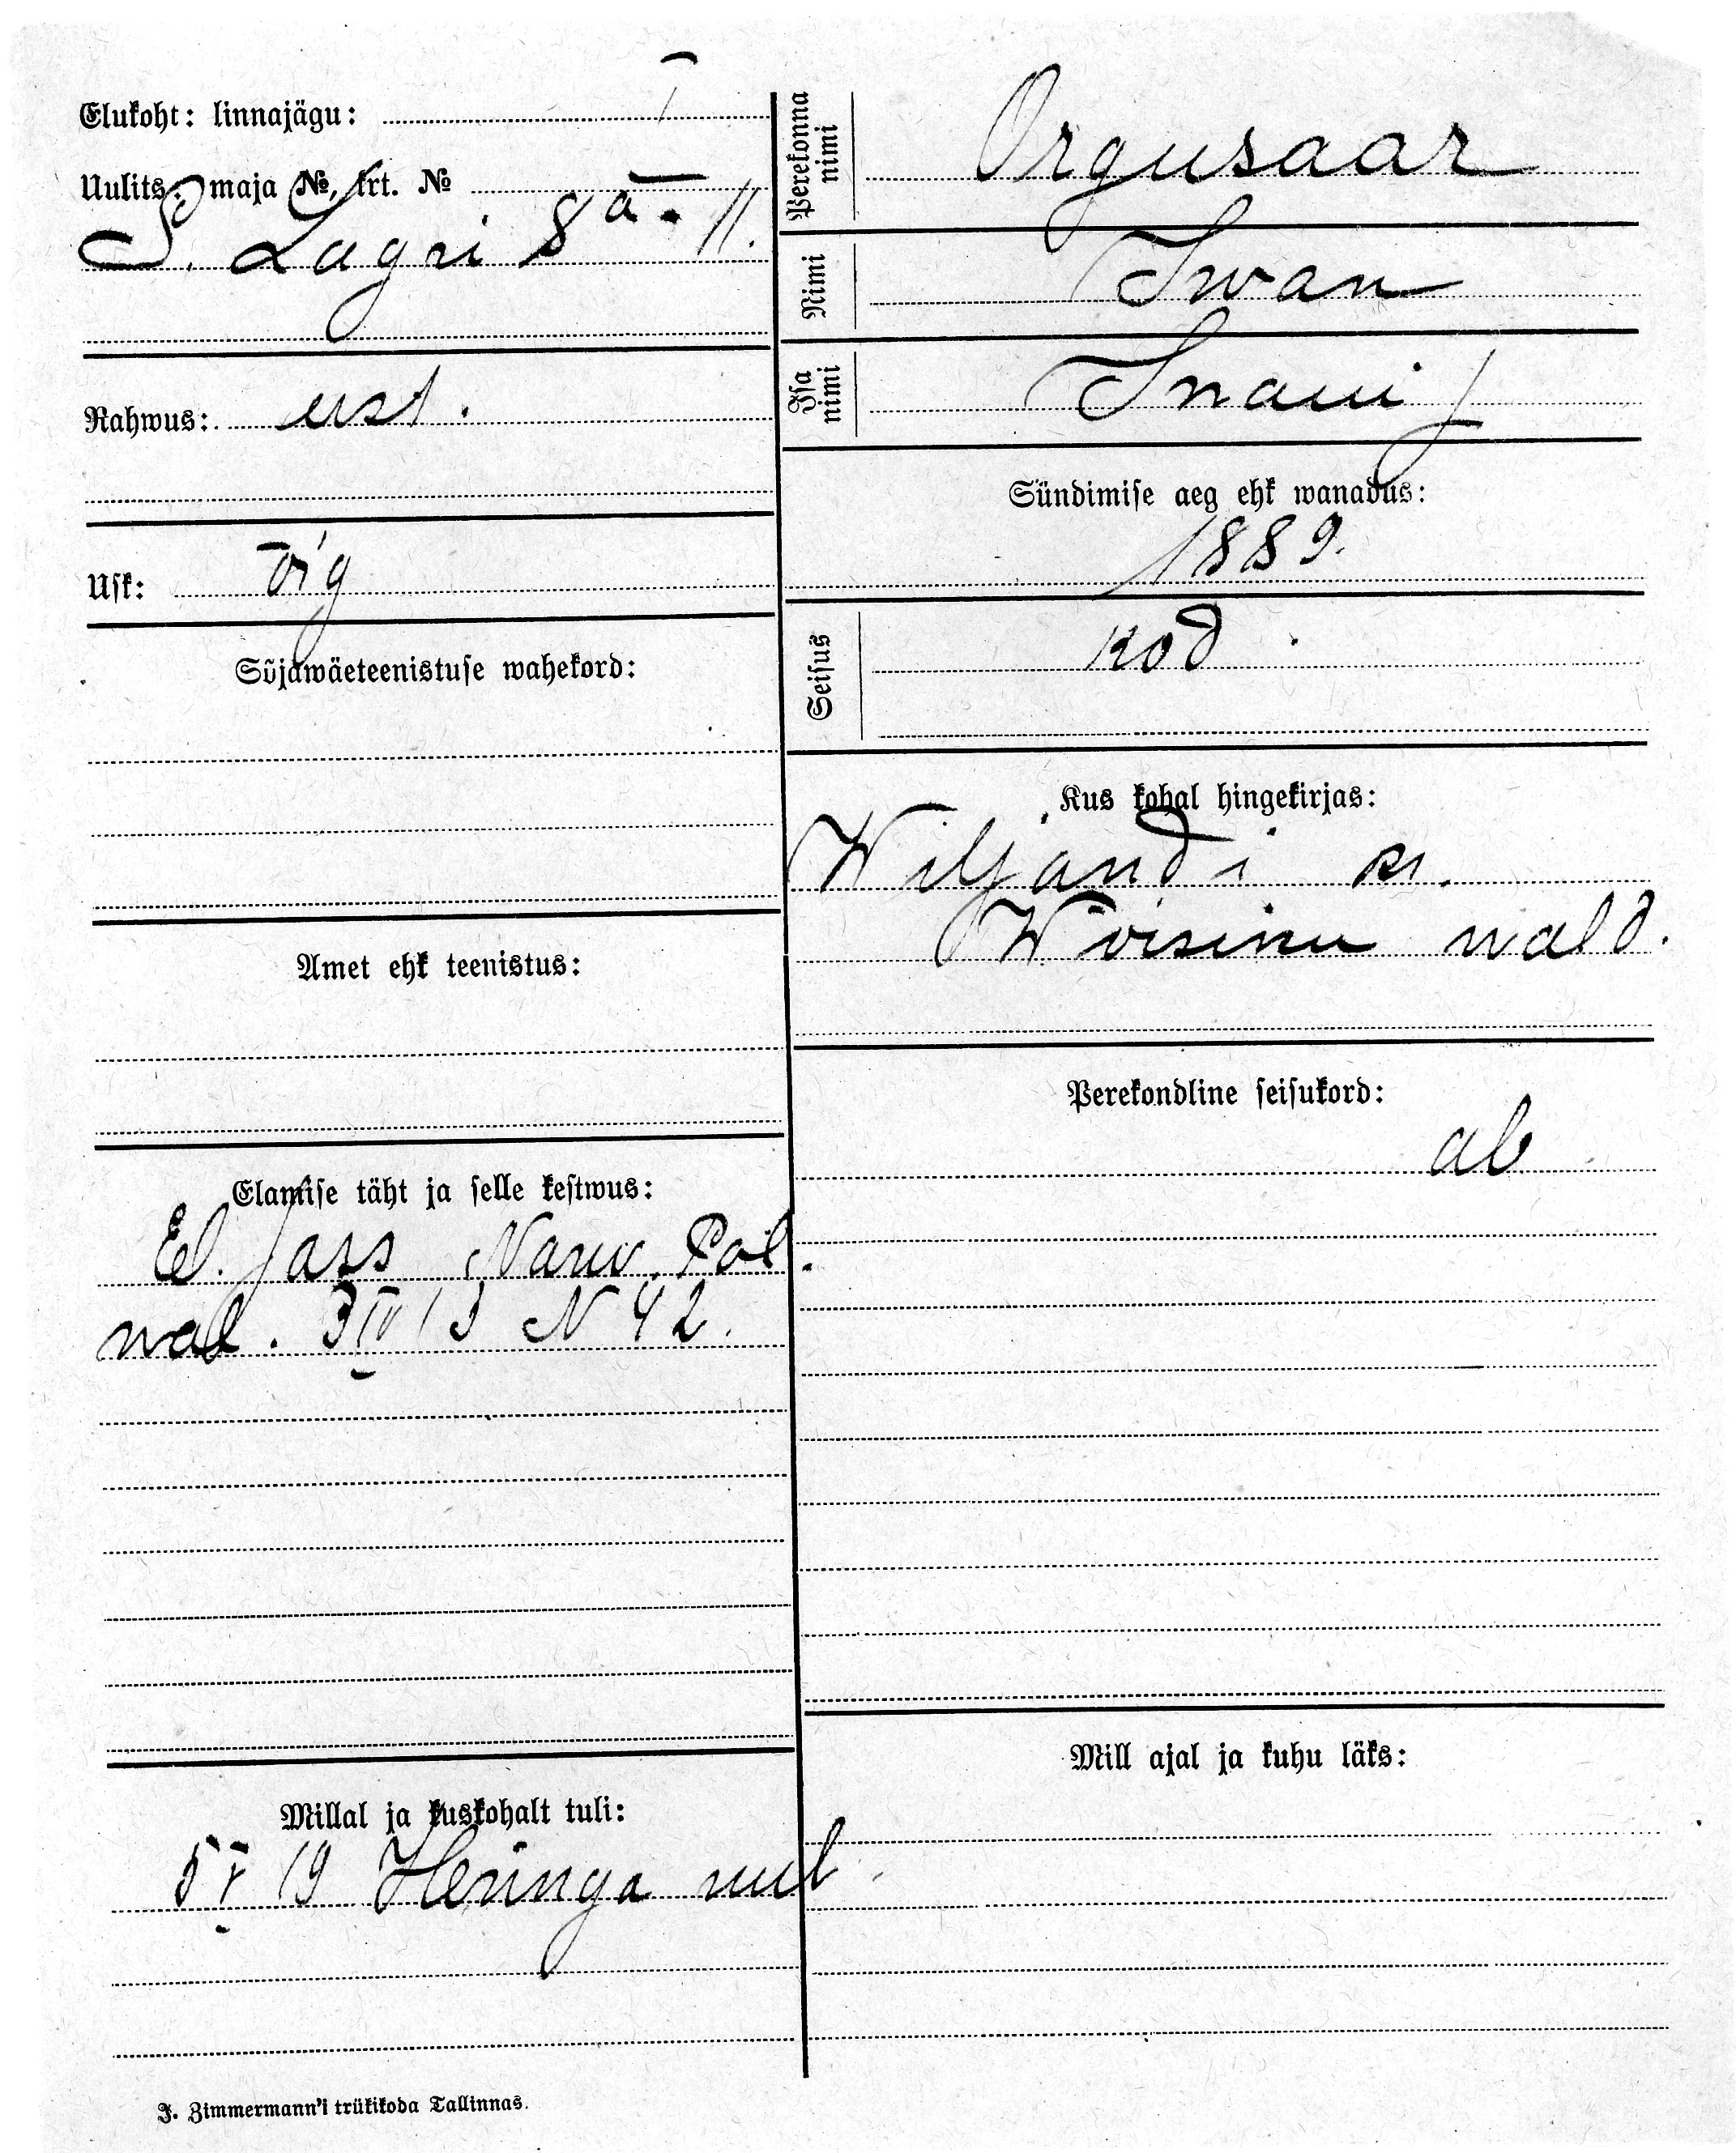 Elukoht: linnajägu: I
Uulits: maja №, krt. №
S. Lagri 8a - 11.
Rahwus: eest.
Usk: õig
Sõjawäeteenistuse wahekord:
Amet ehk teenistus:
Elamise täht ja selle kestwus:
El. pass Narw. Pol.
wal. 3 IV 13 N 42.
Millal ja kuskohalt tuli:
5 V 19 Heringa uul
J. Zimmermann'i trükikoda Tallinnas.
Perekonna nimi Orgusaar
Nimi Iwan
Isa nimi Iwani p
Sündimise aeg ehk wanadus:
1889.
Seisus kod.
Kus kohal hingekirjas:
Wiljandi kr.
Wõisiku wald.
Perekondline seisukord:
ab
Mill ajal ja kuhu läks: